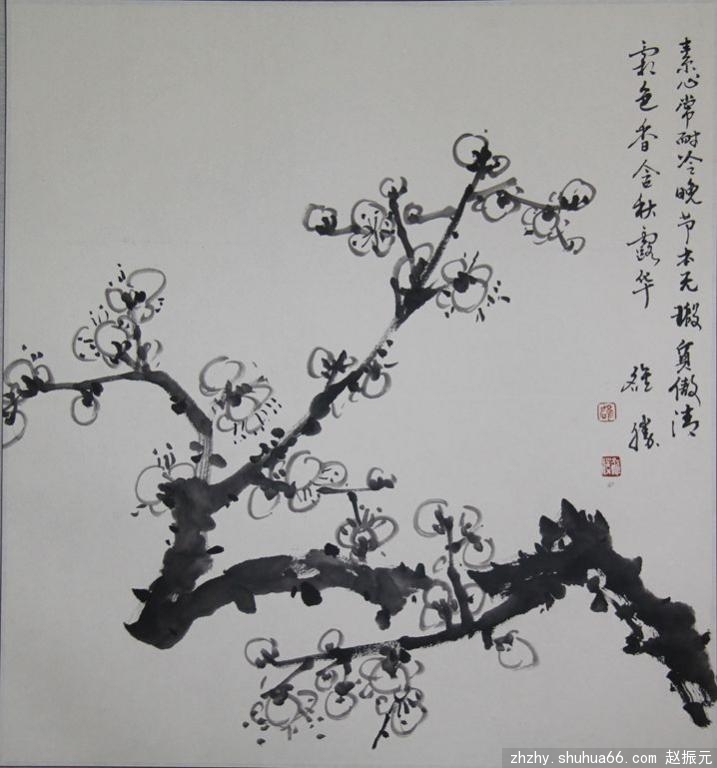 素心常耐冷晚节本无瑕质傲清
霜色香含秋露华
zhzhy.shuhua66.com 赵振元